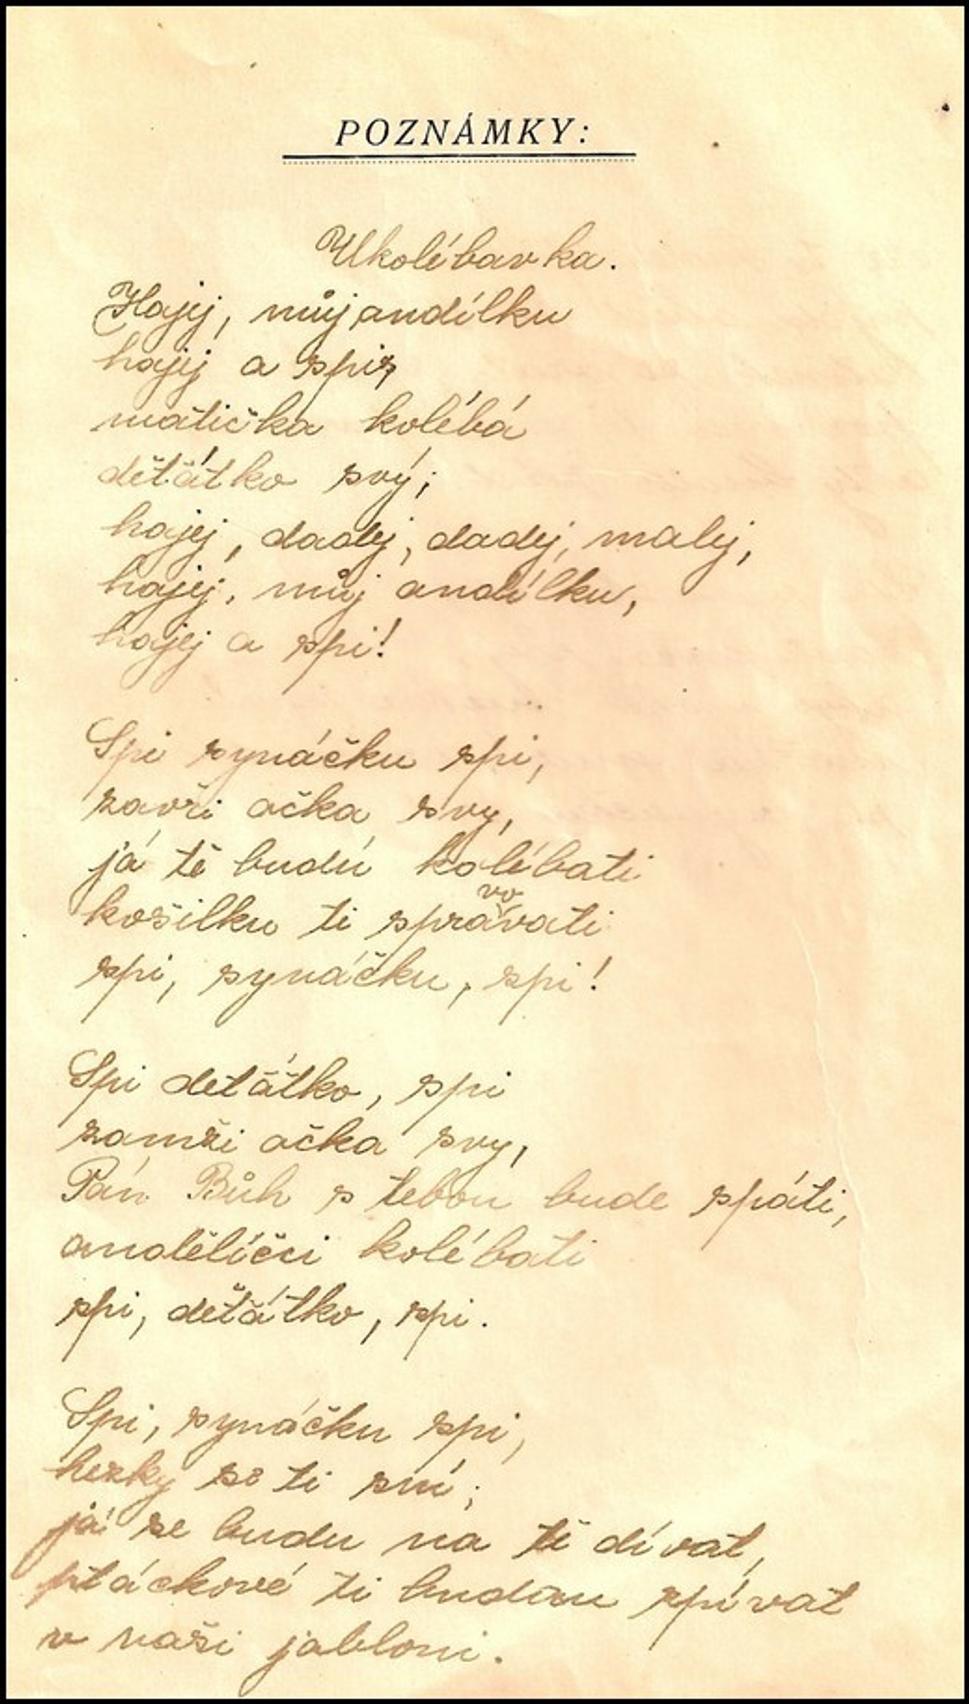 POZNÁMKY:
Ukolébavka.
Hajej, můj andílku
hajej a spi,
matička kolébá
děťátko svý;
hajej, dadej, dadej, malej,
hajej, můj andílku,
hajej a spi!
Spi synáčku spi,
zavři očka svy,
já tě budu kolébati
vo
košilku ti správati
spi, synáčku, spi!
Spi děťátko, spi
zamži očka svy,
Pán Bůh s tebou bude spáti,
andělíčci kolébati
spi, děťátko, spi.
Spi, synáčku spi,
hezky se ti sní;
já se budu na tě dívat,
ptáckové ti budou spívat
v naši jabloni.